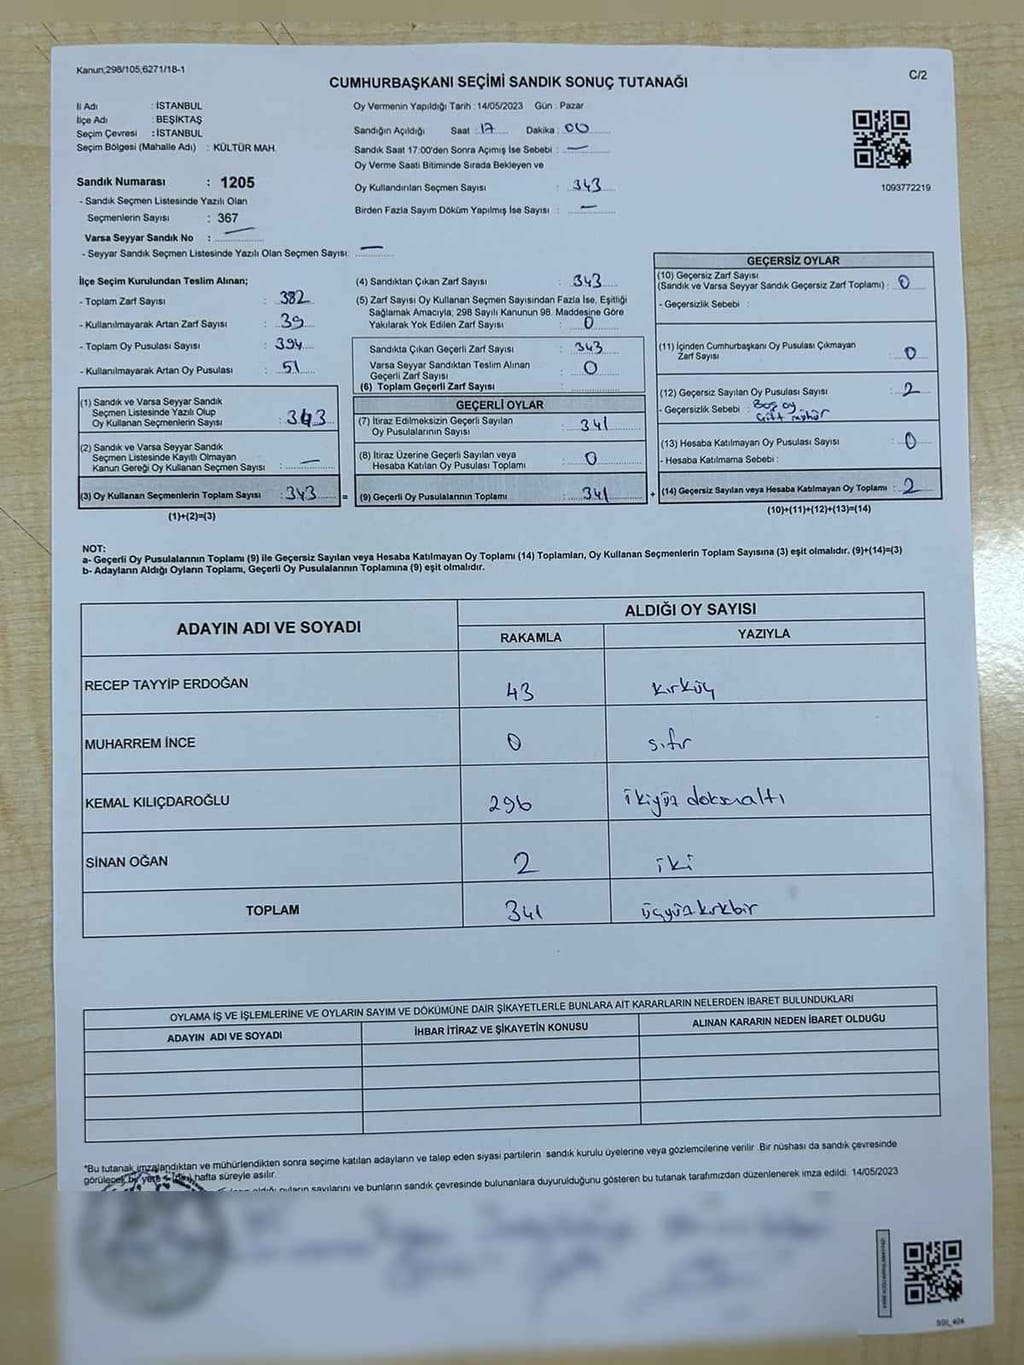 Kanun;298/105,6271/18-1
C/2
CUMHURBAŞKANI SEÇİMİ SANDIK SONUÇ TUTANAĞI
İl Adı : İSTANBUL
İlçe Adı : BEŞİKTAŞ
Seçim Çevresi : İSTANBUL
Seçim Bölgesi (Mahalle Adı) : KÜLTÜR MAH.
Sandık Numarası : 1205
- Sandık Seçmen Listesinde Yazılı Olan
Seçmenlerin Sayısı : 367
Varsa Seyyar Sandık No : —
- Seyyar Sandık Seçmen Listesinde Yazılı Olan Seçmen Sayısı: —
Oy Vermenin Yapıldığı Tarih : 14/05/2023 Gün : Pazar
Sandığın Açıldığı Saat : 17 Dakika : 00
Sandık Saat 17:00'den Sonra Açımış İse Sebebi : —
Oy Verme Saati Bitiminde Sırada Bekleyen ve
Oy Kullandırılan Seçmen Sayısı : 343
Birden Fazla Sayım Döküm Yapılmış İse Sayısı : —
1093772219
İlçe Seçim Kurulundan Teslim Alınan;
- Toplam Zarf Sayısı : 382
- Kullanılmayarak Artan Zarf Sayısı : 39
- Toplam Oy Pusulası Sayısı : 394
- Kullanılmayarak Artan Oy Pusulası : 51
(1) Sandık ve Varsa Seyyar Sandık
Seçmen Listesinde Yazılı Olup
Oy Kullanan Seçmenlerin Sayısı : 343
(2) Sandık ve Varsa Seyyar Sandık
Seçmen Listesinde Kayıtlı Olmayan
Kanun Gereği Oy Kullanan Seçmen Sayısı : —
(3) Oy Kullanan Seçmenlerin Toplam Sayısı : 343 =
(1)+(2)=(3)
(4) Sandıktan Çıkan Zarf Sayısı : 343
(5) Zarf Sayısı Oy Kullanan Seçmen Sayısından Fazla İse, Eşitliği
Sağlamak Amacıyla; 298 Sayılı Kanunun 98. Maddesine Göre
Yakılarak Yok Edilen Zarf Sayısı : 0
Sandıkta Çıkan Geçerli Zarf Sayısı : 343
Varsa Seyyar Sandıktan Teslim Alınan
Geçerli Zarf Sayısı : 0
(6) Toplam Geçerli Zarf Sayısı :
GEÇERLİ OYLAR
(7) İtiraz Edilmeksizin Geçerli Sayılan
Oy Pusulalarının Sayısı : 341
(8) İtiraz Üzerine Geçerli Sayılan veya
Hesaba Katılan Oy Pusulası Toplamı : 0
(9) Geçerli Oy Pusulalarının Toplamı : 341 +
GEÇERSİZ OYLAR
(10) Geçersiz Zarf Sayısı
(Sandık ve Varsa Seyyar Sandık Geçersiz Zarf Toplamı) : 0
- Geçersizlik Sebebi :
(11) İçinden Cumhurbaşkanı Oy Pusulası Çıkmayan
Zarf Sayısı : 0
(12) Geçersiz Sayılan Oy Pusulası Sayısı : 2
- Geçersizlik Sebebi : Boş oy
Çift mühür
(13) Hesaba Katılmayan Oy Pusulası Sayısı : 0
- Hesaba Katılmama Sebebi :
(14) Geçersiz Sayılan veya Hesaba Katılmayan Oy Toplamı : 2
(10)+(11)+(12)+(13)=(14)
NOT:
a- Geçerli Oy Pusulalarının Toplamı (9) ile Geçersiz Sayılan veya Hesaba Katılmayan Oy Toplamı (14) Toplamları, Oy Kullanan Seçmenlerin Toplam Sayısına (3) eşit olmalıdır. (9)+(14)=(3)
b- Adayların Aldığı Oyların Toplamı, Geçerli Oy Pusulalarının Toplamına (9) eşit olmalıdır.
ADAYIN ADI VE SOYADI
ALDIĞI OY SAYISI
RAKAMLA YAZIYLA
RECEP TAYYİP ERDOĞAN 43 kırküç
MUHARREM İNCE 0 sıfır
KEMAL KILIÇDAROĞLU 296 ikiyüz doksanaltı
SİNAN OĞAN 2 iki
TOPLAM 341 üçyüzkırkbir
OYLAMA İŞ VE İŞLEMLERİNE VE OYLARIN SAYIM VE DÖKÜMÜNE DAİR ŞİKAYETLERLE BUNLARA AİT KARARLARIN NELERDEN İBARET BULUNDUKLARI
ADAYIN ADI VE SOYADI İHBAR İTİRAZ VE ŞİKAYETİN KONUSU ALINAN KARARIN NEDEN İBARET OLDUĞU
*Bu tutanak imzalandıktan ve mühürlendikten sonra seçime katılan adayların ve talep eden siyasi partilerin sandık kurulu üyelerine veya gözlemcilerine verilir. Bir nüshası da sandık çevresinde
görülecek bir yere 1 hafta süreyle asılır.
aldığı oyların sayılarını ve bunların sandık çevresinde bulunanlara duyurulduğunu gösteren bu tutanak tarafımızdan düzenlenerek imza edildi. 14/05/2023